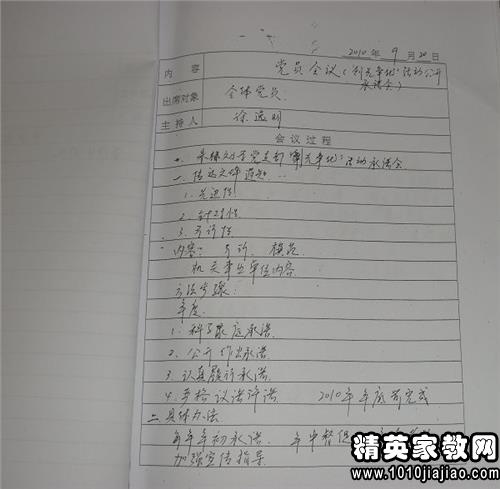 2010年 9月20日
内容 党员会议（"创先争优"活动公开
承诺会）
出席对象 全体党员
主持人 徐逸明
会议过程
党支部"创先争优"活动承诺会
一、传达文件通知
1. 先进性
2. 针对性
3. 可行性
内容：
机关事业单位内容
方法步骤：
年度：
1. 科学 承诺
2. 公开作出承诺
3. 认真履行承诺
4. 严格议诺评诺 2010年年底前完成
二、具体办法
每年年初承诺、年中督促
加强宣传指导
精英家教网
www.1010jiajiao.com